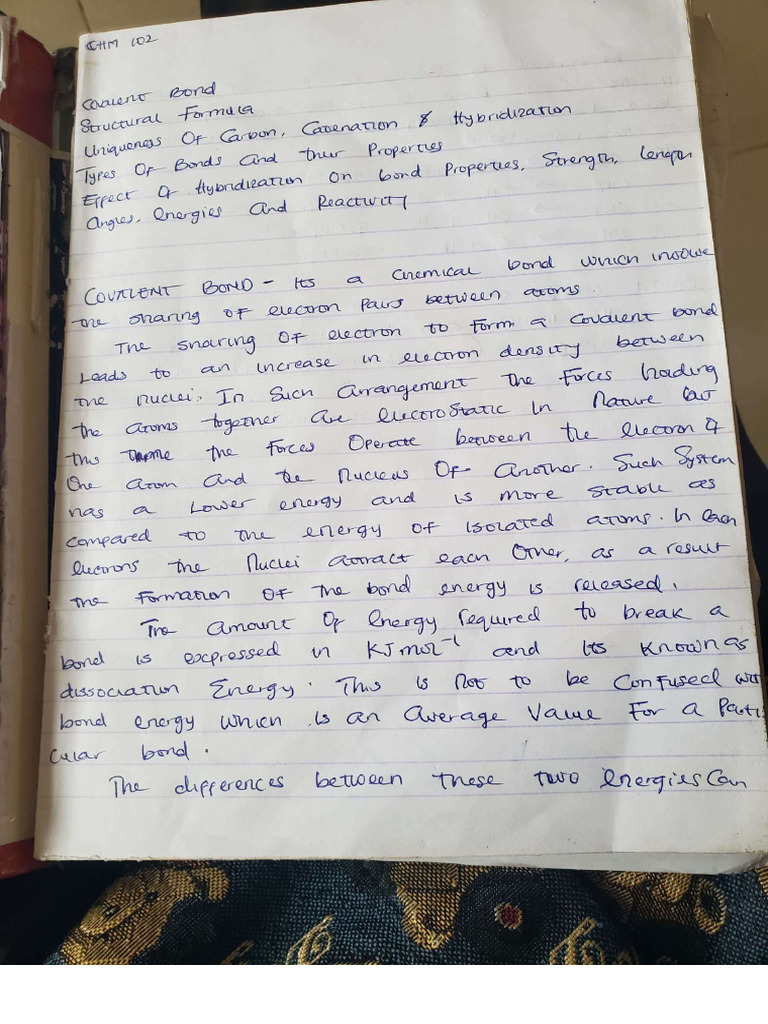 CHM 102
Covalent Bond
Structural Formula
Uniqueness Of Carbon, Catenation & Hybridization
Types Of Bonds And their Properties
Effect Of Hybridization On bond Properties, Strength, Length
Angles, Energies And Reactivity
COVALENT BOND - Its a Chemical bond which involve
the sharing of electron Pairs between atoms.
The sharing Of electron to form a Covalent bond
Leads to an increase in electron density between
the nuclei. In Such Arrangement the Forces holding
the atoms together are electrostatic In Nature but
this the Forces Operate between the electron of
One atom and the Nucleus Of Another. Such System
has a Lower energy and is more stable as
compared to the energy of Isolated atoms. In each
electrons the Nuclei attract each Other, as a result
the Formation Of the bond energy is released.
The amount Of Energy required to break a
bond is expressed in KJmol⁻¹ and its known as
dissociation Energy. This is Not to be Confused with
bond energy which is an Average Value For a Parti
cular bond.
The differences between these two energies Can